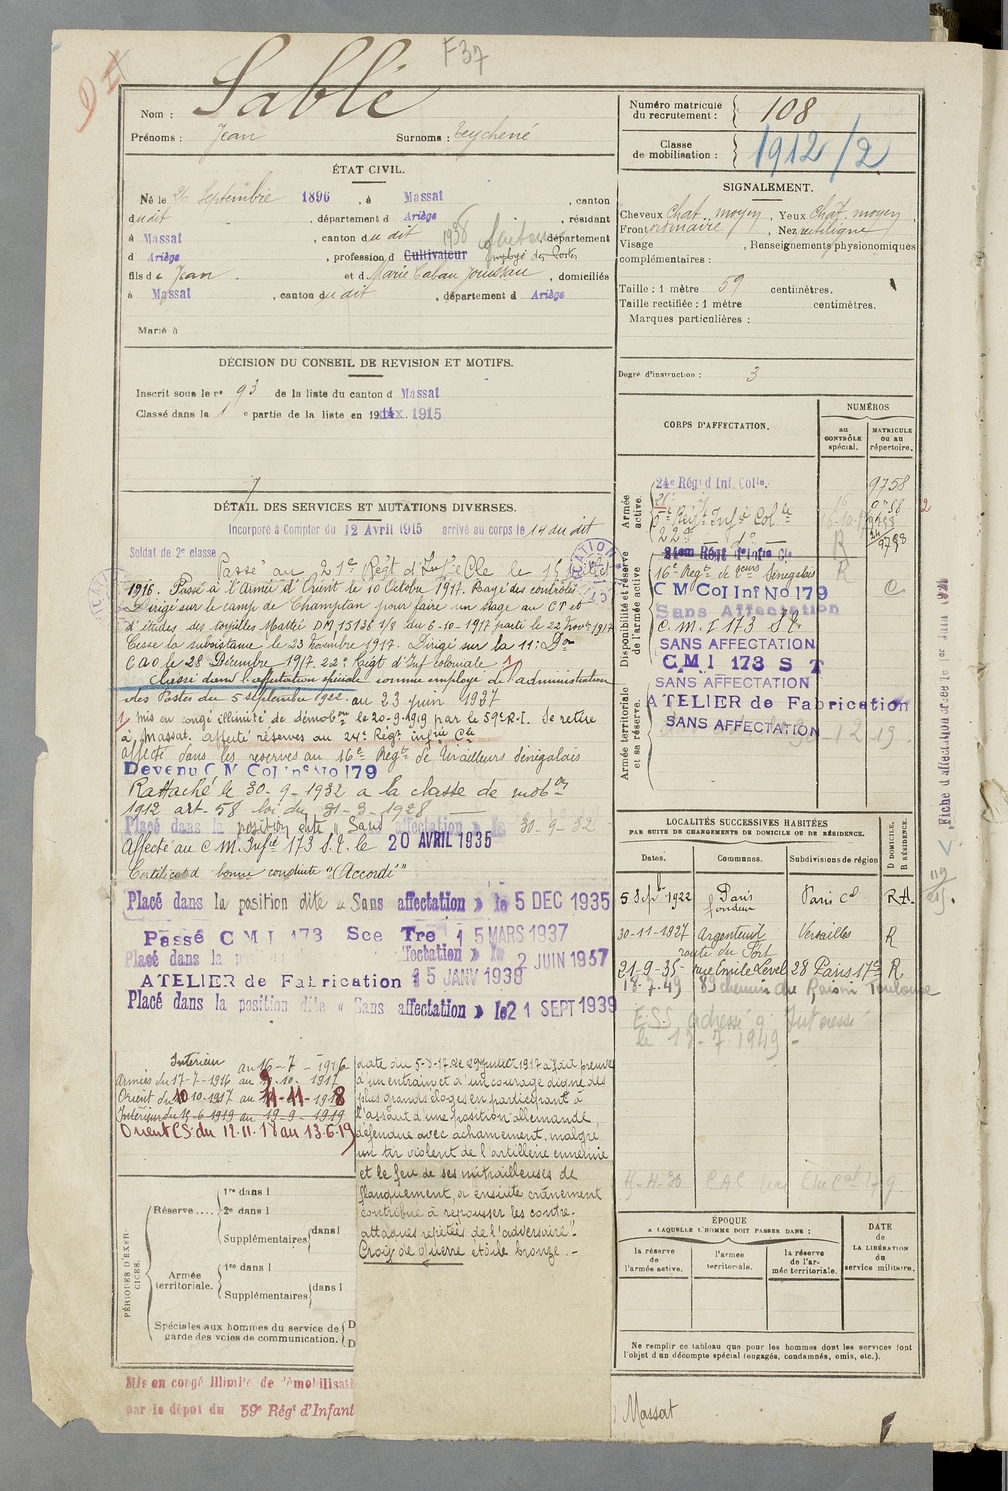 F37
Nom : Sablé
Prénoms : Jean Surnoms : Teychené
ÉTAT CIVIL.
Né le 26 Septembre 1896, à Massat, canton
dudit, département d Ariège, résidant
à Massat, canton du dit 1938 facteur, département
d Ariège, profession d Cultivateur employé des Postes
fils de Jean et d Marie Caban Joussau, domiciliés
à Massat, canton dudit, département d Ariège
Marié à
DÉCISION DU CONSEIL DE REVISION ET MOTIFS.
Inscrit sous le n° 93 de la liste du canton d Massat
Classé dans la 1e partie de la liste en 1915
DÉTAIL DES SERVICES ET MUTATIONS DIVERSES.
Incorporé à Compter du 12 Avril 1915 arrivé au corps le 14 du dit
Soldat de 2e classe
Passé au 21e Régt d'Infie Cle le 15 Juillet
1916. Passé à l'Armée d'Orient le 10 Octobre 1917. Rayé des contrôles
Dirigé sur le camp de Champlan pour faire un stage au CT et
d'études des torpilles Mattei DM 15136 1/8 du 6-10-1917 parti le 22 Novre 1917
Cesse la subsistance le 23 Novembre 1917. Dirigé sur la 11e Don
CAO le 28 Décembre 1917. 22e Régt d'Inf coloniale
Classé dans l'affectation spéciale comme employé de l'administration
des Postes du 5 septembre 1922 au 23 juin 1937
1 mis en congé illimité de démobon le 20-9-1919 par le 59e R.I. Se retire
à Massat. affecté réserves au 24e Régt infrie Cle
affecté dans les réserves au 16e Régt de tirailleurs sénégalais
Devenu C M Col Inf No 179
Rattaché le 30-9-1932 a la classe de mobon
1912 art-58 loi du 31-3-1928
Placé dans la position dite « Sans affectation » le 30-9-32
Affecté au C M. Infie 173 S.T. le 20 AVRIL 1935
Certificat d bonne conduite "Accordé"
Placé dans la position dite « Sans affectation » le 5 DEC 1935
Passé C M I 173 Sce Tre 15 MARS 1937
Placé dans la position affectation » le 2 JUIN 1937
ATELIER de Fabrication 15 JANV 1938
Placé dans la position dite « Sans affectation » le 21 SEPT 1939
Intérieur au 16-7-1916
Armées du 17-7-1916 au 9-10-1917
Orient du 10 10-1917 au 11-11-1918
Intérieur du 14-6-1919 au 19-9-1919
Orient CS du 12.11.18 au 13.6.19
date du 5-8-17 le 29 juillet 1917 a fait preuve
d'un entrain et d'un courage digne des
plus grands éloges en participant à
l'assaut d'une position allemande,
défendue avec acharnement, malgré
un tir violent de l'artillerie ennemie
et le feu de ses mitrailleuses de
flanquement, a ensuite crânement
contribué à repousser les contre-
attaques répétées de l'adversaire".
Croix de guerre étoile bronze.-
PÉRIODES D'EXERCICES.
Réserve....
1re dans l
2e dans l
Supplémentaires dans l
Armée territoriale.
1re dans l
Supplémentaires dans l
Spéciales aux hommes du service de garde des voies de communication.
D
D
Mis en congé illimité de démobilisati
par le dépôt du 59e Régt d'Infant
Numéro matricule du recrutement : 108
Classe de mobilisation : 1912/2
SIGNALEMENT.
Cheveux chat. moyen, Yeux chat. moyen
Front ordinaire, Nez rectiligne
Visage, Renseignements physionomiques
complémentaires :
Taille : 1 mètre 59 centimètres.
Taille rectifiée : 1 mètre centimètres.
Marques particulières :
Degré d'instruction : 3
CORPS D'AFFECTATION.
NUMÉROS
au CONTRÔLE spécial.
MATRICULE ou au répertoire.
Armée active.
24e Régt d Inf. Colle. 9758
22e do
Disponibilité et réserve de l'armée active.
24em Régt d'Infie Cle 9758
16e Régt de tirs Sénégalais
C M Col Inf No 179
Sans Affectation
C. M. I 173 S.T.
SANS AFFECTATION
C M I 173 S T
SANS AFFECTATION
Armée territoriale et sa réserve.
ATELIER de Fabrication
SANS AFFECTATION
LOCALITÉS SUCCESSIVES HABITÉES
PAR SUITE DE CHANGEMENTS DE DOMICILE OU DE RÉSIDENCE.
Dates. Communes. Subdivisions de région D DOMICILE, R RÉSIDENCE.
5 Sept 1922 Paris Paris Cal R
30-11-1927 Argenteuil Versailles R
route du Port
21-9-35 rue Emile Level 28 Paris 17e R
18-7-49 89 chemin du Raisin Toulouse
ESS adressé à Intéressé
le 18-7 1949-
ÉPOQUE
A LAQUELLE L'HOMME DOIT PASSER DANS :
la réserve de l'armée active.
l'armée territoriale.
la réserve de l'armée territoriale.
DATE de LA LIBÉRATION du service militaire.
Ne remplir ce tableau que pour les hommes dont les services font
l'objet d'un décompte spécial (engagés, condamnés, omis, etc.).
Massat